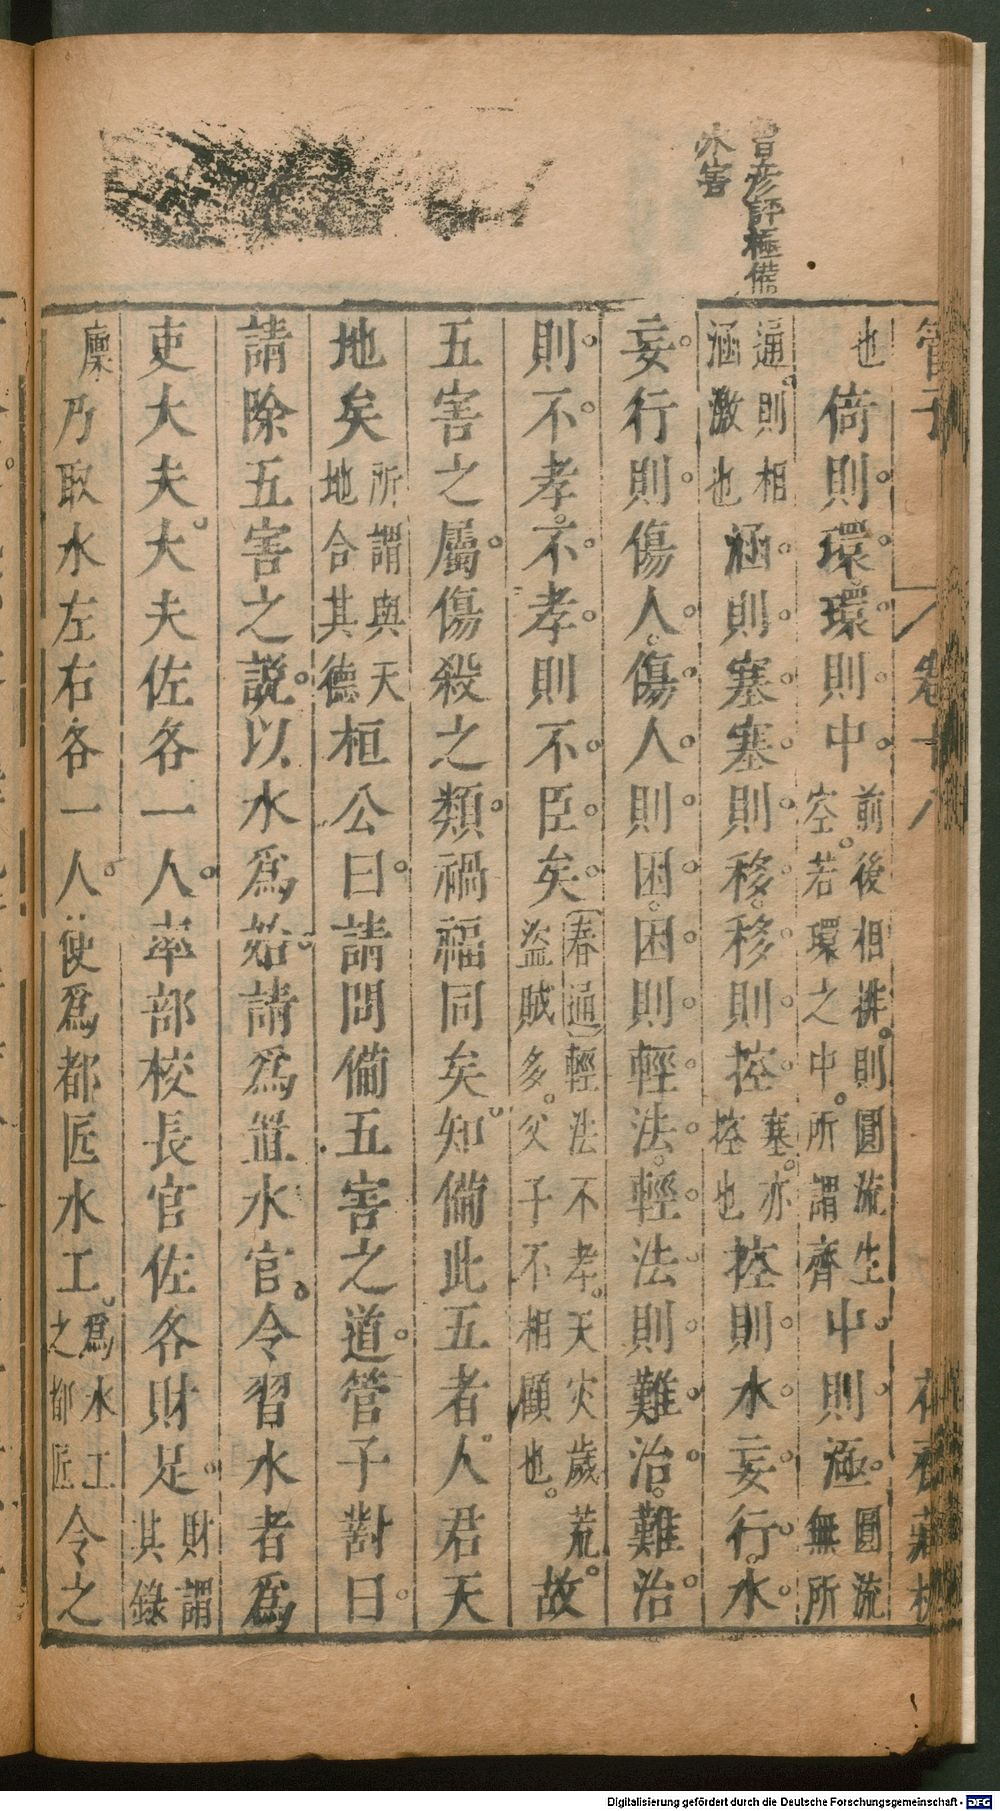 彥評極備
水害
管子 卷十八 花齋藏板
也倚則環環則中前後相排則圓流生空若環之中所謂齊中則涵圓流無所
通則相涵激也涵則塞塞則移移則控塞亦控也控則水妄行水
妄行則傷人傷人則困困則輕法輕法則難治難治
則不孝不孝則不臣矣春通輕法不孝天災歲荒盜賊多父子不相顧也故
五害之屬傷殺之類禍福同矣知備此五者人君天
地矣所謂與天地合其德桓公曰請問備五害之道管子對曰
請除五害之說以水爲始請爲置水官令習水者爲
吏大夫大夫佐各一人率部校長官佐各財足財謂其錄
廩乃取水左右各一人使爲都匠水工爲水工之都匠令之
Digitalisierung gefördert durch die Deutsche Forschungsgemeinschaft - DFG